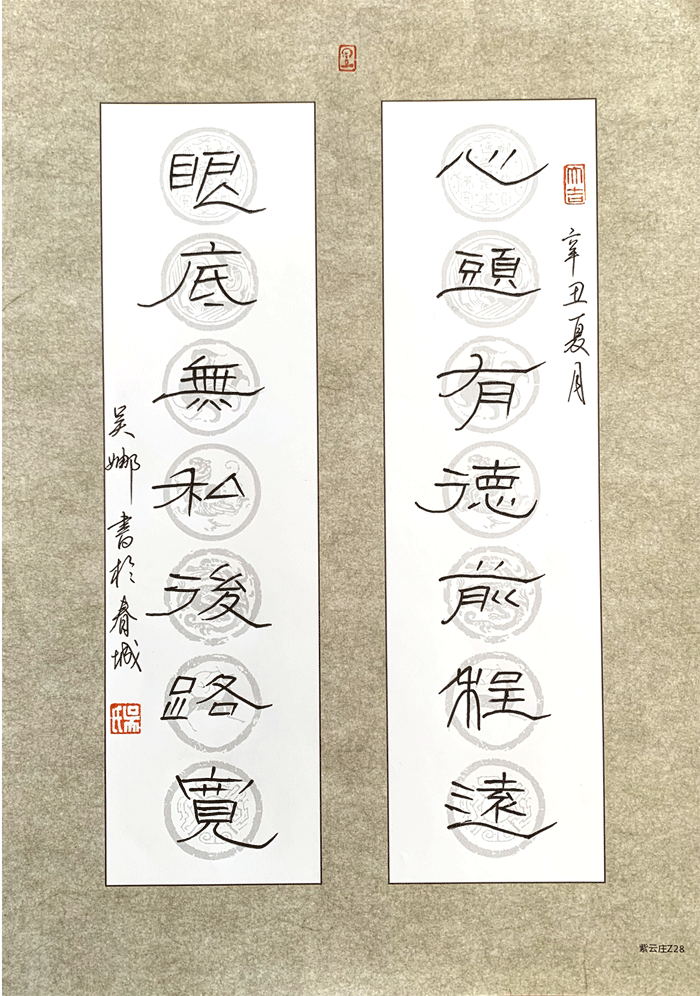 辛丑夏月
心頭有德前程遠
眼底無私後路寬
吴娜書於春城
大吉
吴氏
紫云庄Z28